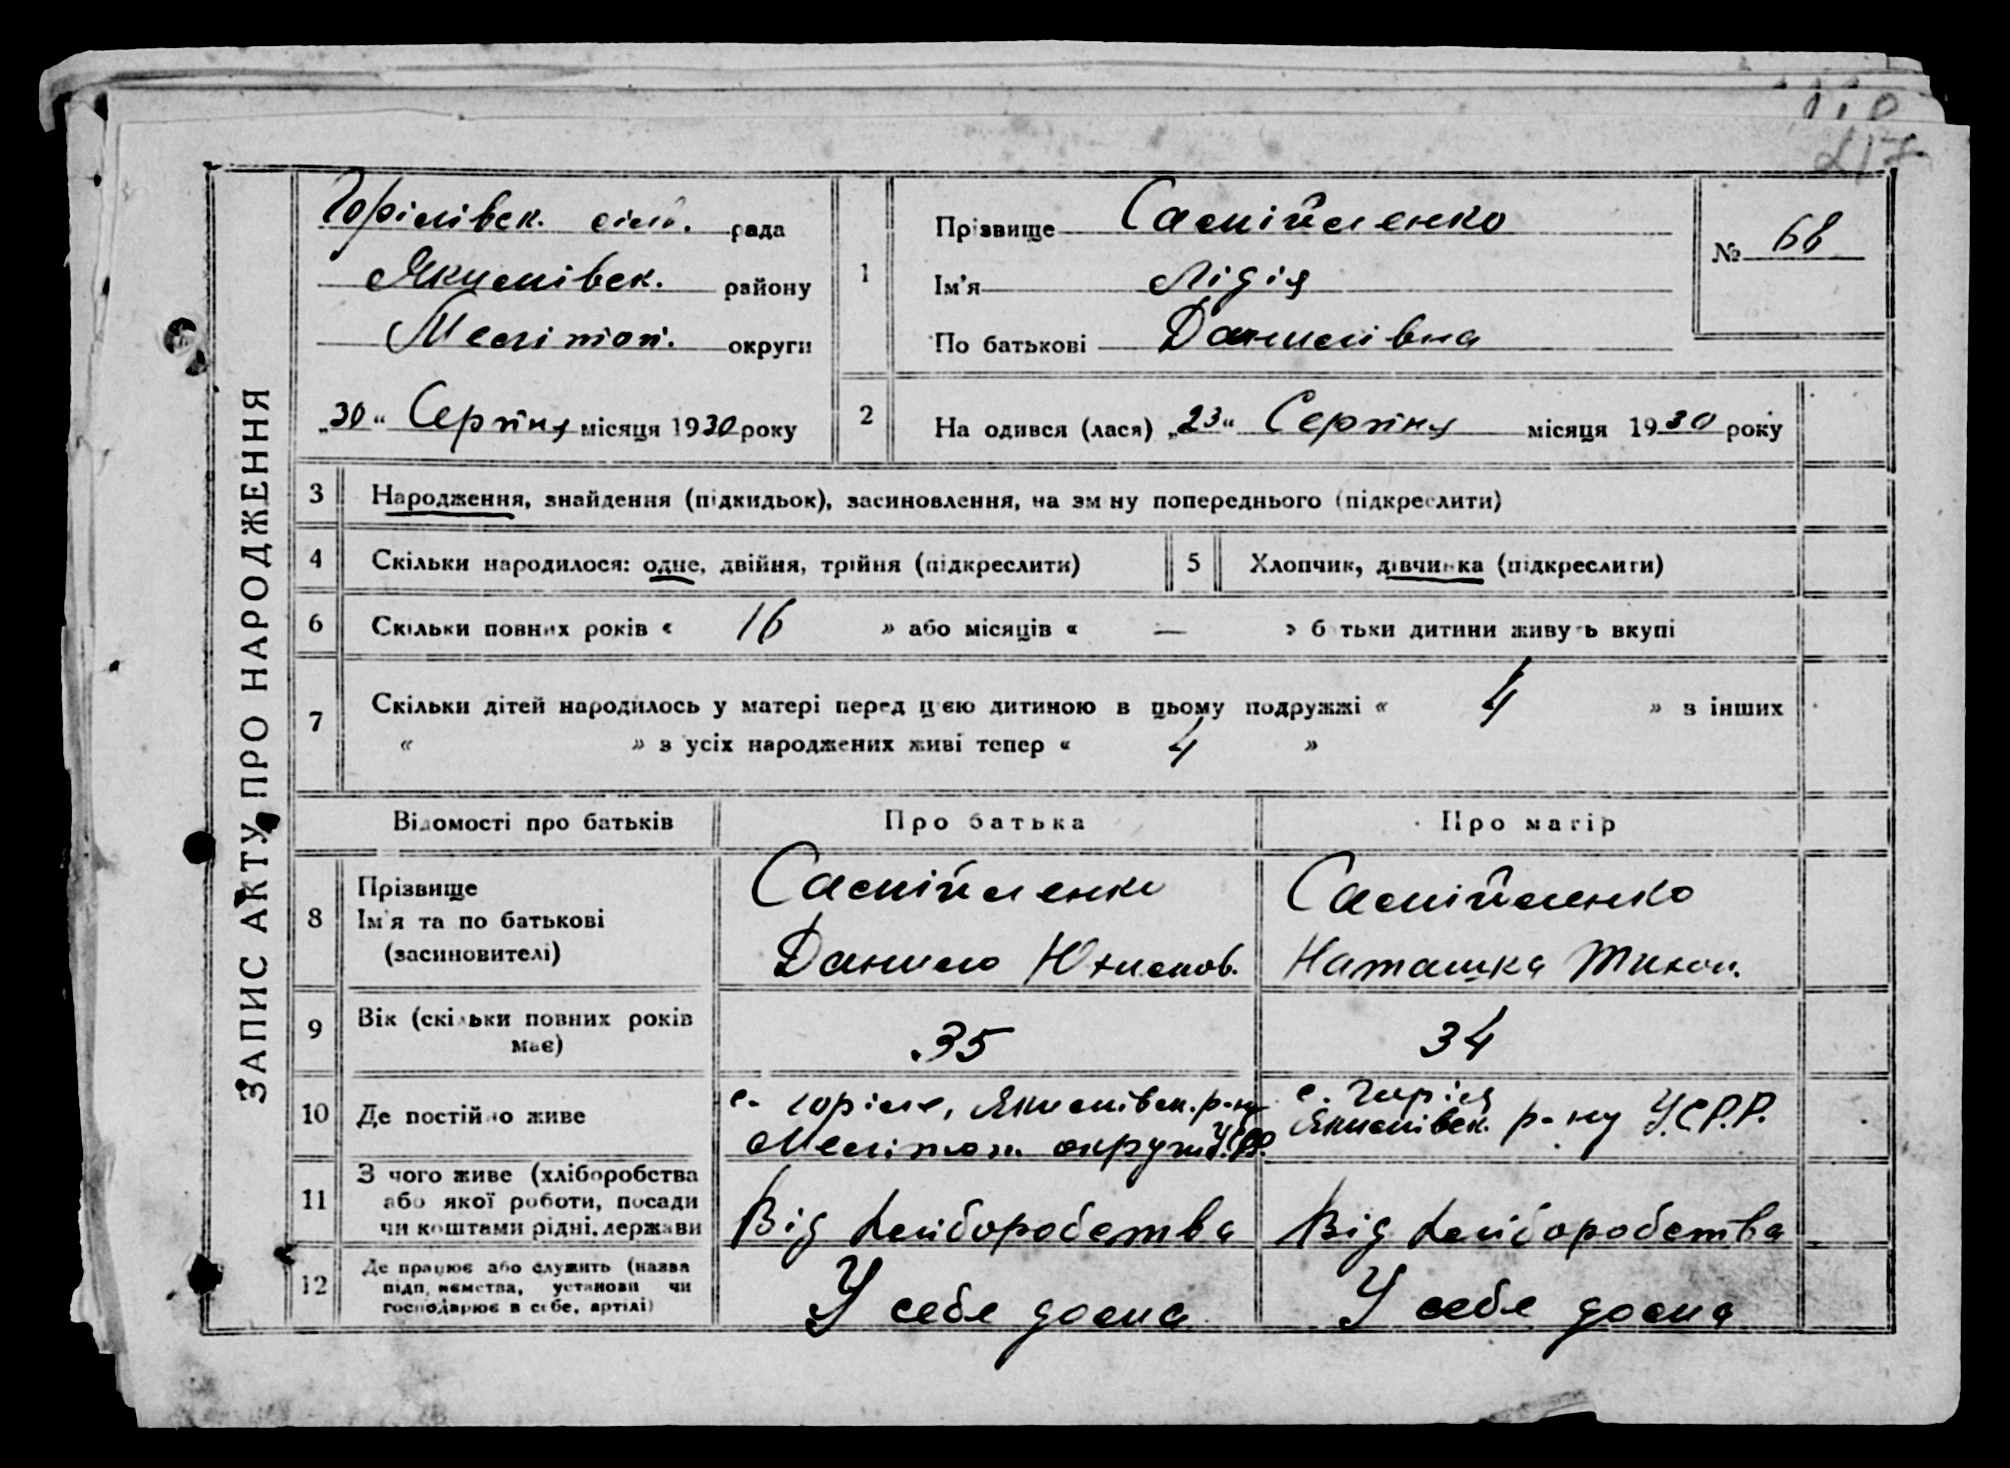 217
ЗАПИС АКТУ ПРО НАРОДЖЕННЯ
Горілівськ. сільс. рада
Якимівськ. району
Мелітоп. округи
„30“ Серпня місяця 1930 року
1
Прізвище Самійленко
Ім'я Лідія
По батькові Данилівна
№ 68
2 На одився (лася) „23“ Серпня місяця 1930 року
3 Народження, знайдення (підкидьок), засиновлення, на зм ну попереднього (підкреслити)
4 Скільки народилося: одне, двійня, трійня (підкреслити)
5 Хлопчик, дівчинка (підкреслити)
6 Скільки повних років « 16 » або місяців « — » б тьки дитини живуть вкупі
7 Скільки дітей народилось у матері перед цією дитиною в цьому подружжі « 4 » з інших
« » з усіх народжених живі тепер « 4 »
Відомості про батьків Про батька Про матір
8 Прізвище
Ім'я та по батькові
(засиновителі)
Самійленко
Данило Юхимов.
Самійленко
Наташка Тихон.
9 Вік (скільки повних років
має)
35
34
10 Де постійно живе
с. Горіле, Якимівськ. р-ну
Мелітоп. округи У.СРР.
с. Горіле
Якимівськ. р-ну У.С.Р.Р.
11 З чого живе (хліборобства
або якої роботи, посади
чи коштами рідні, держави
Від хліборобства
Від хліборобства
12 Де працює або служить (назва
підп иємства, установи чи
господарює в себе, артілі)
У себе дома
У себе дома